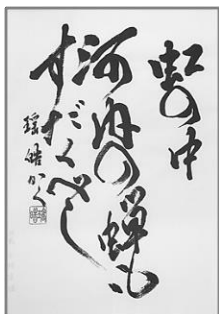 虹の中
河内の蝉も
すだくべし
かく